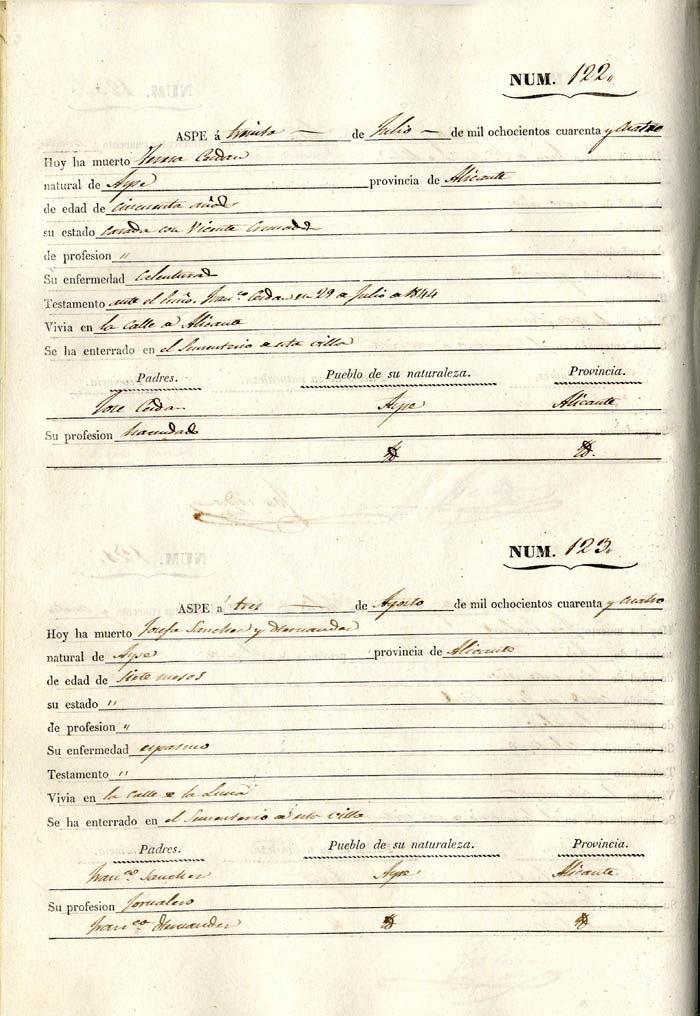 NUM. 122.
ASPE á treinta — de Julio — de mil ochocientos cuarenta y cuatro
Hoy ha muerto Teresa Cerdan
natural de Aspe provincia de Alicante
de edad de cincuenta años
su estado casada con Vicente
de profesion "
Su enfermedad calenturas
Testamento ante el Franco. Cerdan en 29 de Julio de 1844
Vivia en la calle de Alicante
Se ha enterrado en el Sementerio de esta villa
Padres. Pueblo de su naturaleza. Provincia.
Jose Cerdan Aspe Alicante
Su profesion hacendado
NUM. 123.
ASPE á tres — de Agosto de mil ochocientos cuarenta y cuatro
Hoy ha muerto Josefa Sanchez y Hernandez
natural de Aspe provincia de Alicante
de edad de siete meses
su estado "
de profesion "
Su enfermedad espasmo
Testamento "
Vivia en la calle de la Luna
Se ha enterrado en el Sementerio de esta villa
Padres. Pueblo de su naturaleza. Provincia.
Franco. Sanchez Aspe Alicante
Su profesion Jornalero
Franco Hernandez